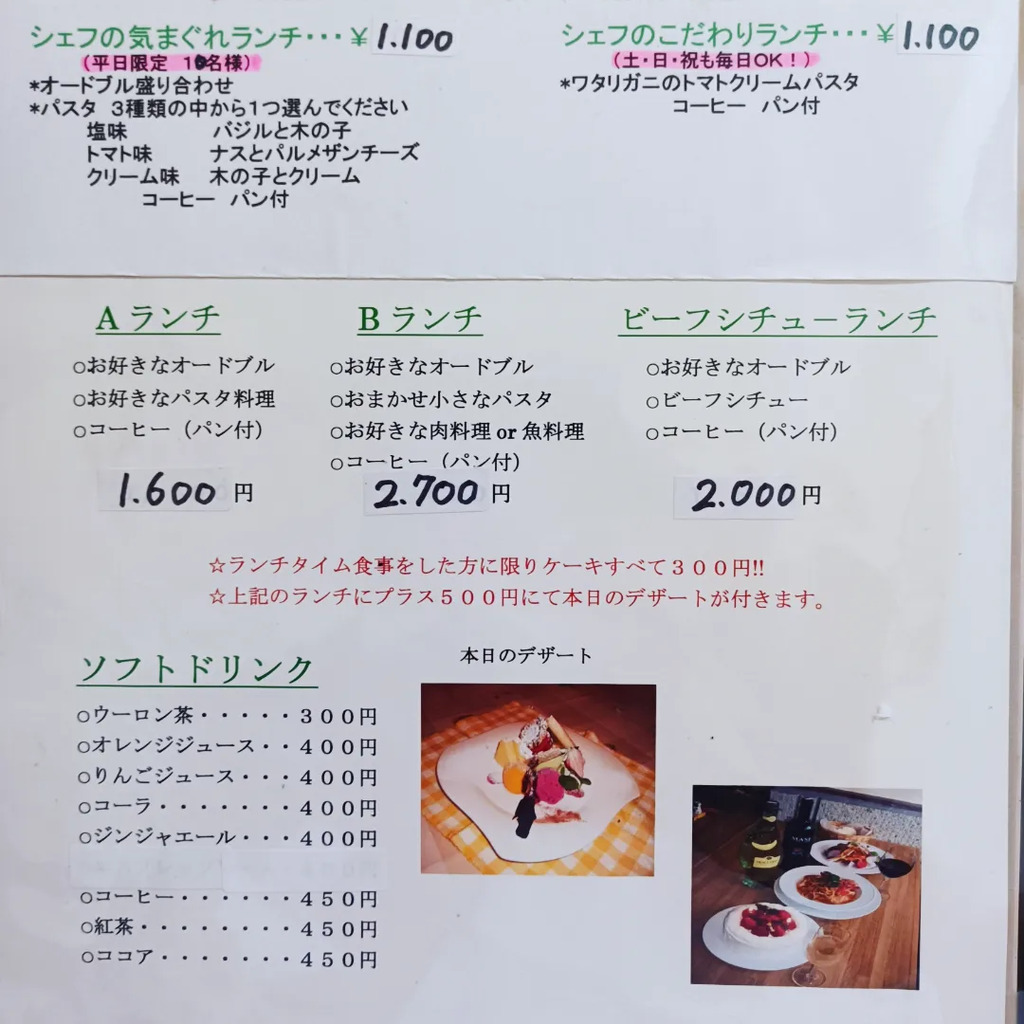 シェフの気まぐれランチ・・・￥1.100
（平日限定　10名様）
*オードブル盛り合わせ
*パスタ　3種類の中から1つ選んでください
塩味　バジルと木の子
トマト味　ナスとパルメザンチーズ
クリーム味　木の子とクリーム
コーヒー　パン付
シェフのこだわりランチ・・・￥1.100
（土・日・祝も毎日OK！）
*ワタリガニのトマトクリームパスタ
コーヒー　パン付
Aランチ
○お好きなオードブル
○お好きなパスタ料理
○コーヒー（パン付）
1.600円
Bランチ
○お好きなオードブル
○おまかせ小さなパスタ
○お好きな肉料理 or 魚料理
○コーヒー（パン付）
2.700円
ビーフシチューランチ
○お好きなオードブル
○ビーフシチュー
○コーヒー（パン付）
2.000円
☆ランチタイム食事をした方に限りケーキすべて３００円!!
☆上記のランチにプラス５００円にて本日のデザートが付きます。
ソフトドリンク
○ウーロン茶・・・・・３００円
○オレンジジュース・・４００円
○りんごジュース・・・４００円
○コーラ・・・・・・・４００円
○ジンジャエール・・・４００円
○コーヒー・・・・・・４５０円
○紅茶・・・・・・・・４５０円
○ココア・・・・・・・４５０円
本日のデザート